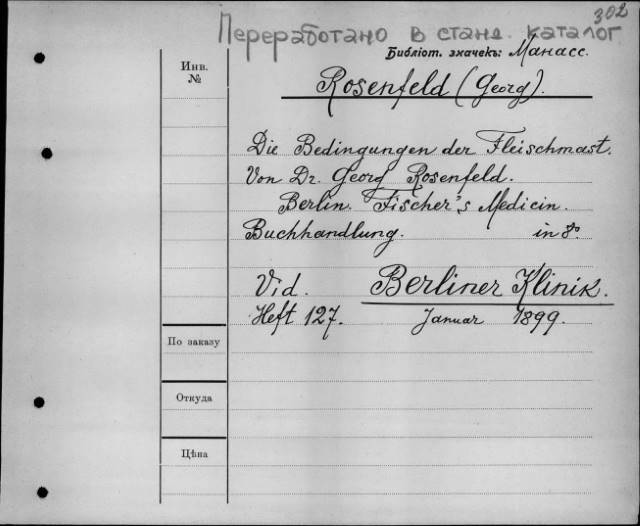 302
Переработано в станд. каталог
Библіот. значекъ: Манасс.
Инв.
№
Rosenfeld (Georg).
Die Bedingungen der Fleischmast.
Von Dr. Georg Rosenfeld.
Berlin. Fischer's Medicin.
Buchhandlung. in 8º
Vid. Berliner Klinik.
Heft 127. Januar 1899.
По заказу
Откуда
Цѣна